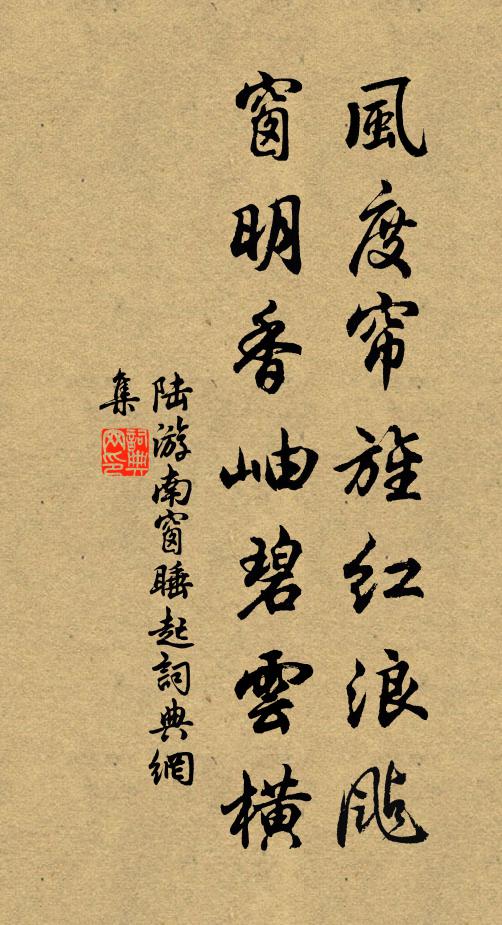 風度帘旌红浪颭
窗明香岫碧雲横
陆游南窗睡起詞典網
集
詞典網印